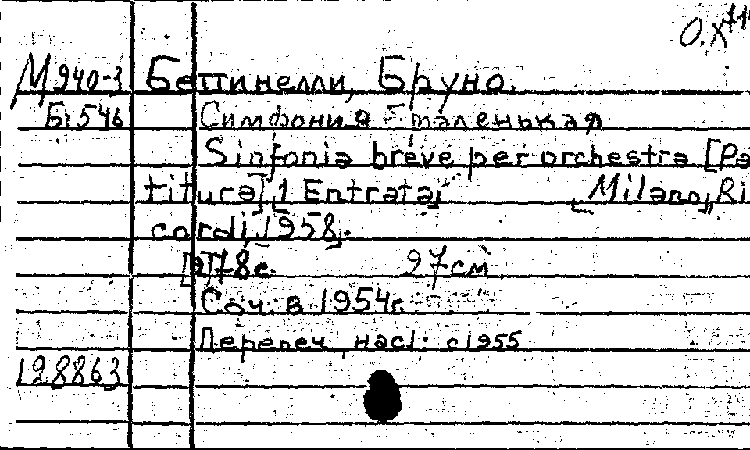 М940-3 Беттинелли, Бруно.
Симфония маленькая
Sinfonia breve per orchestra [Pa
titura] [1 Entrata, Milano, Ri
cordi, 1958].
[2] 78 с. 27 см
Соч. в 1954 г.
Перепеч. с 1955
128863